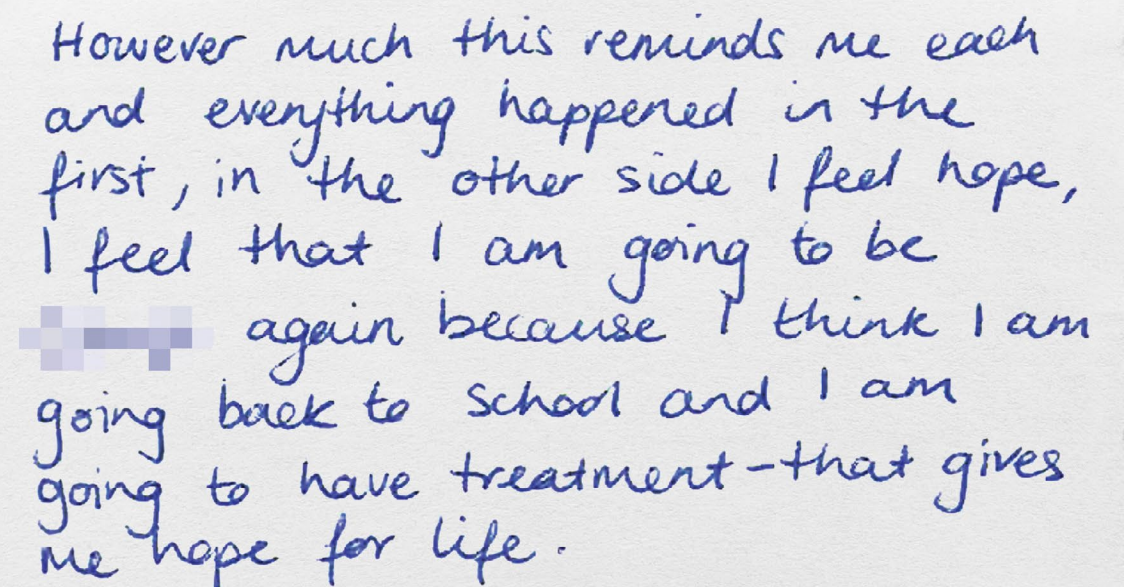 However much this reminds me each
and everything happened in the
first, in the other side I feel hope,
I feel that I am going to be
again because I think I am
going back to school and I am
going to have treatment - that gives
me hope for life.